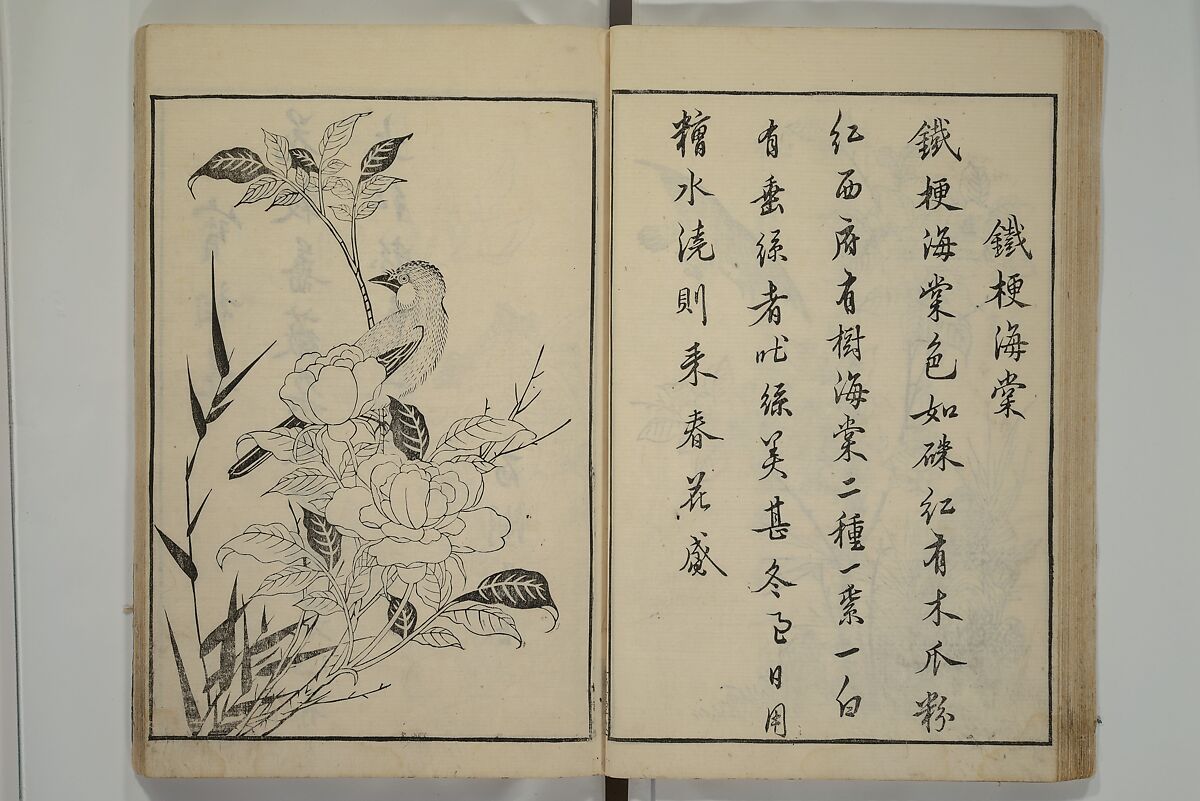 鐵梗海棠
鐵梗海棠色如硃紅有木瓜粉
紅西府有樹海棠二種一紫一白
有垂絲者吐絲美甚冬至日用
糟水澆則来春花盛